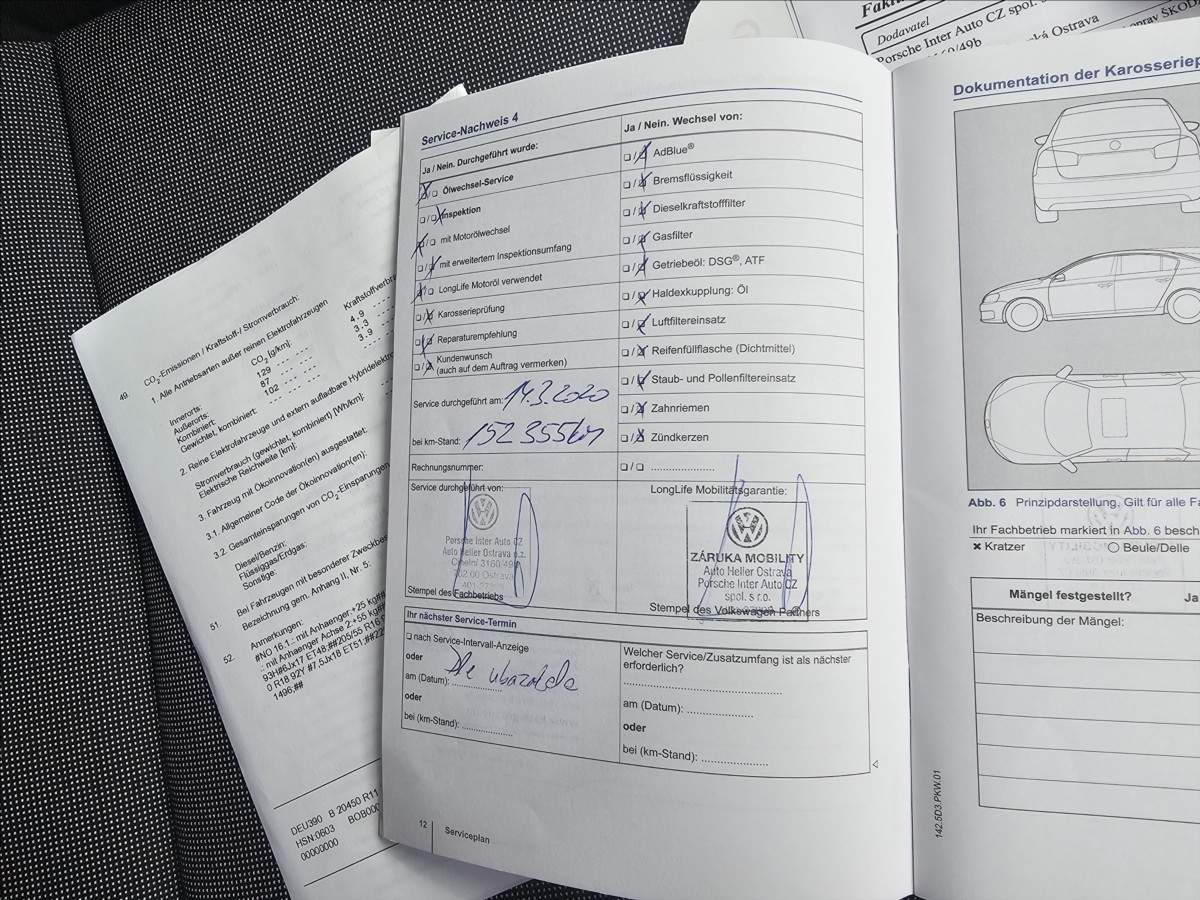 Dodavatel
Porsche Inter Auto CZ spol.
Ostrava
Service-Nachweis 4
Ja / Nein. Durchgeführt wurde:
Ölwechsel-Service
Inspektion
mit Motorölwechsel
mit erweitertem Inspektionsumfang
LongLife Motoröl verwendet
Karosserieprüfung
Reparaturempfehlung
Kundenwunsch
(auch auf dem Auftrag vermerken)
Service durchgeführt am: 14.3.2020
bei km-Stand: 152 355km
Rechnungsnummer:
Service durchgeführt von:
Porsche Inter Auto CZ
Auto Heller Ostrava o.z.
Stempel des Fachbetriebs
Ja / Nein. Wechsel von:
AdBlue®
Bremsflüssigkeit
Dieselkraftstofffilter
Gasfilter
Getriebeöl: DSG®, ATF
Haldexkupplung: Öl
Luftfiltereinsatz
Reifenfüllflasche (Dichtmittel)
Staub- und Pollenfiltereinsatz
Zahnriemen
Zündkerzen
LongLife Mobilitätsgarantie:
ZÁRUKA MOBILITY
Auto Heller Ostrava
Porsche Inter Auto CZ
spol. s r.o.
Stempel des Volkswagen Partners
Ihr nächster Service-Termin
nach Service-Intervall-Anzeige
oder
am (Datum):
oder
bei (km-Stand):
Welcher Service/Zusatzumfang ist als nächster
erforderlich?
am (Datum):
oder
bei (km-Stand):
12
Serviceplan
49.
CO2-Emissionen / Kraftstoff-/ Stromverbrauch:
1. Alle Antriebsarten außer reinen Elektrofahrzeugen
CO2 [g/km]:
Innerorts: 129 4,9
Außerorts: 87 3,3
Kombiniert: 102 3,9
Gewichtet, kombiniert:
2. Reine Elektrofahrzeuge und extern aufladbare
Stromverbrauch (gewichtet, kombiniert) [Wh/km]:
Elektrische Reichweite [km]:
3. Fahrzeug mit Ökoinnovation(en) ausgestattet:
3.1. Allgemeiner Code der Ökoinnovation(en):
3.2. Gesamteinsparungen von CO2-Einsparungen
Diesel/Benzin:
Flüssiggas/Erdgas:
Sonstige:
51.
Bei Fahrzeugen mit besonderer
Bezeichnung gem. Anhang II, Nr. 5:
52.
Anmerkungen:
#NO 16.1.: mit Anhaenger:+25
.: mit Anhaenger Achse 2:+55
93H#6Jx17 ET48;##205/55 R16
0 R18 92Y #7,5Jx18 ET51;
1496;##
DEU390 B 20450 R11
HSN:0603
00000000
Dokumentation der
Abb. 6 Prinzipdarstellung. Gilt für alle
Ihr Fachbetrieb markiert in Abb. 6
Kratzer
Beule/Delle
Mängel festgestellt?
Ja
Beschreibung der Mängel:
142.5D3.PKW.01